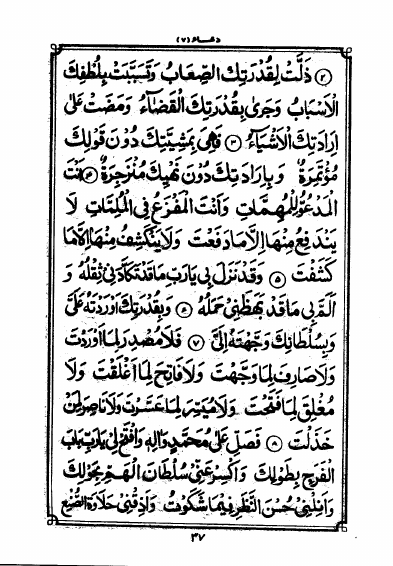 دعاء (٧)
② ذَلَّتْ لِقُدْرَتِكَ الصِّعَابُ وَتَسَبَّبَتْ بِلُطْفِكَ
الْاَسْبَابُ وَجَرىٰ بِقُدْرَتِكَ الْقَضَآءُ وَمَضَتْ عَلىٰ
اِرَادَتِكَ الْاَشْيَآءُ ③ فَهِىَ بِمَشِيَّتِكَ دُوْنَ قَوْلِكَ
مُؤْتَمِرَةٌ وَبِاِرَادَتِكَ دُوْنَ نَهْيِكَ مُنْزَجِرَةٌ ④ اَنْتَ
الْمَدْعُوُّ لِلْمُهِمَّاتِ وَاَنْتَ الْمَفْزَعُ فِى الْمُلِمَّاتِ لَا
يَنْدَفِعُ مِنْهَا اِلَّا مَا دَفَعْتَ وَلَا يَنْكَشِفُ مِنْهَا اِلَّا مَا
كَشَفْتَ ⑤ وَقَدْ نَزَلَ بِى يَارَبِّ مَا قَدْ تَكَاَّدَنِىْ ثِقْلُهُ وَ
اَلَمَّ بِىْ مَا قَدْ بَهَظَنِىْ حَمْلُهُ ⑥ وَبِقُدْرَتِكَ اَوْرَدْتَهُ عَلَىَّ
وَبِسُلْطَانِكَ وَجَّهْتَهُ اِلَىَّ ⑦ فَلَا مُصْدِرَ لِمَا اَوْرَدْتَ
وَلَا صَارِفَ لِمَا وَجَّهْتَ وَلَا فَاتِحَ لِمَا اَغْلَقْتَ وَلَا
مُغْلِقَ لِمَا فَتَحْتَ وَلَا مُيَسِّرَ لِمَا عَسَّرْتَ وَلَا نَاصِرَ لِمَنْ
خَذَلْتَ ⑧ فَصَلِّ عَلىٰ مُحَمَّدٍ وَاٰلِهِ وَافْتَحْ لِىْ يَارَبِّ بَابَ
الْفَرَجِ بِطَوْلِكَ وَاكْسِرْ عَنِّىْ سُلْطَانَ الْهَمِّ بِحَوْلِكَ
وَاَنِلْنِىْ حُسْنَ النَّظَرِ فِيْمَا شَكَوْتُ وَاَذِقْنِىْ حَلَاوَةَ الصُّنْعِ
٤٧